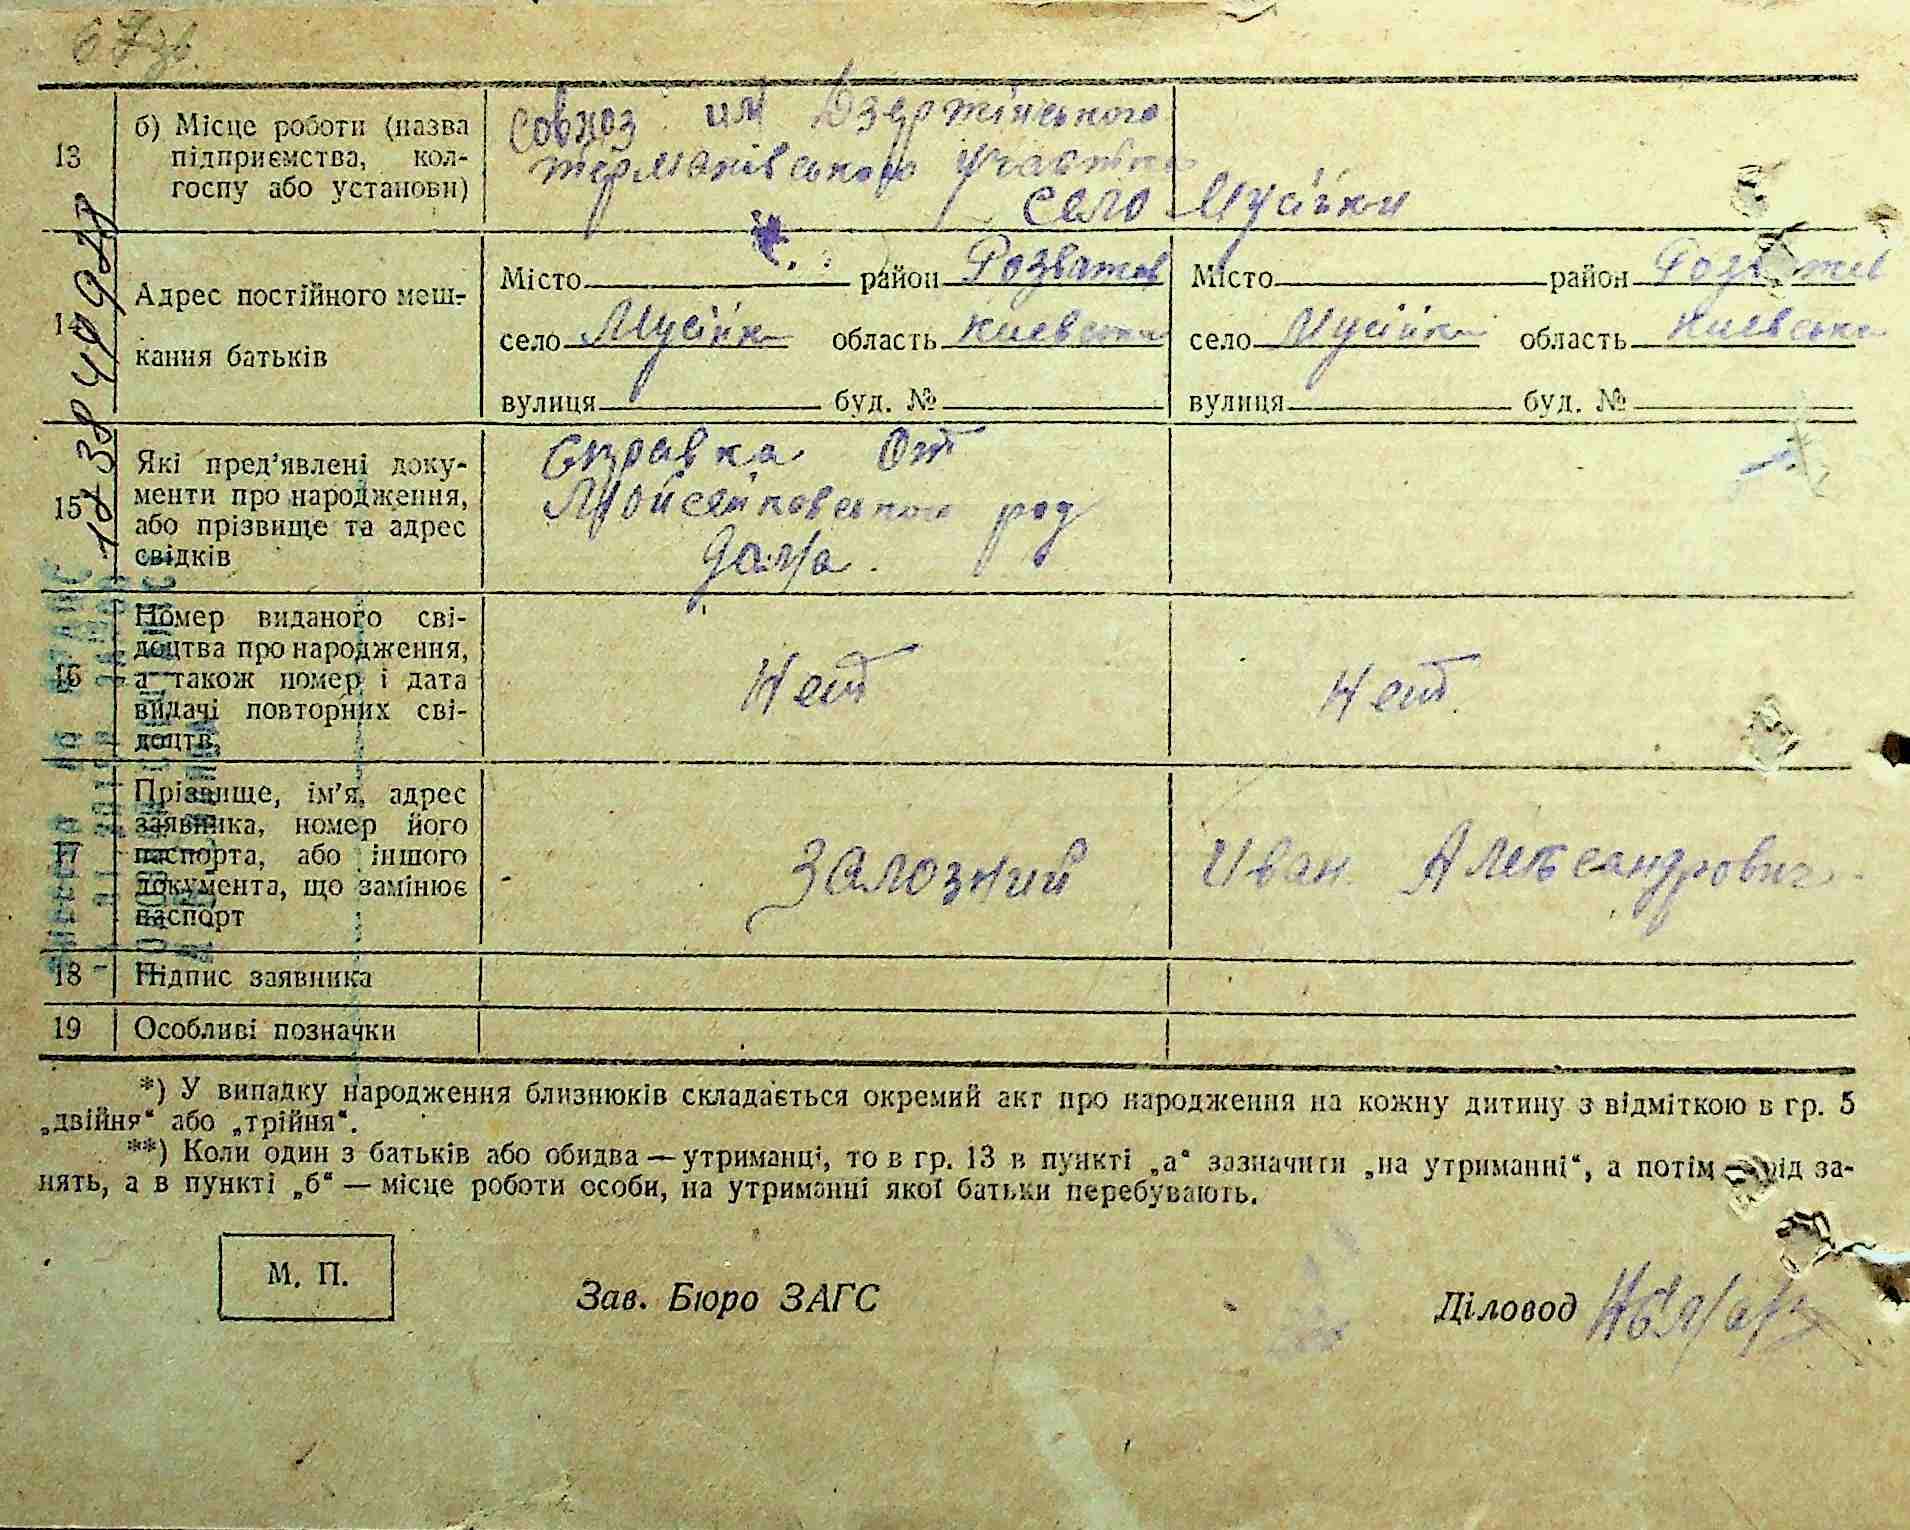 67зв.
13
б) Місце роботи (назва
підприємства, кол-
госпу або установи)
совхоз им Дзержінського
термаківського участка
село Мусійки
14
Адрес постійного меш-
кання батьків
Місто район Розважев
село Мусійки область Киевська
вулиця буд. №
Місто район Розважев
село Мусійки область Киевська
вулиця буд. №
15
Які пред’явлені доку-
менти про народження,
або прізвище та адрес
свідків
Справка От
Мойсейковського род
дома.
16
Номер виданого сві-
доцтва про народження,
а також номер і дата
видачі повторних сві-
доцтв,
Нет
Нет
17
Прізвище, ім’я, адрес
заявника, номер його
паспорта, або іншого
документа, що замінює
паспорт
Залозний Иван Александрович
18
Підпис заявника
19
Особливі позначки
*) У випадку народження близнюків складається окремий акт про народження на кожну дитину з відміткою в гр. 5
„двійня“ або „трійня“.
**) Коли один з батьків або обидва — утриманці, то в гр. 13 в пункті „а“ зазначити „на утриманні“, а потім рід за-
нять, а в пункті „б“ — місце роботи особи, на утриманні якої батьки перебувають.
М. П.
Зав. Бюро ЗАГС
Діловод